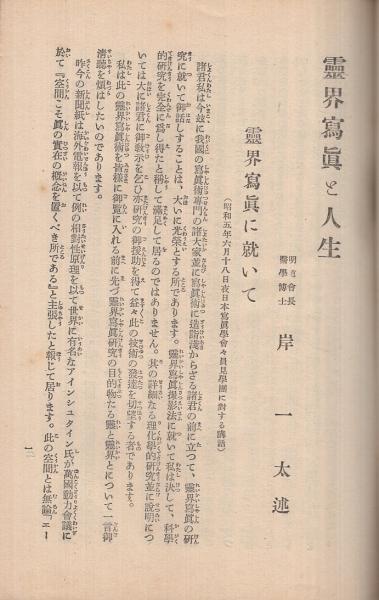 靈界寫眞と人生
明道會長
醫學博士
岸一太述
靈界寫眞に就いて
(昭和五年六月十八夜日本寫眞學會々員見學團に對する講話)
諸君私は今玆に我國の寫眞術專門の諸大家並に寫眞術に造詣淺からざる諸君の前に立つて、靈界寫眞の研
究に就いて御話しすることは、大いに光榮とする所であります。靈界寫眞撮影法に就いて私は決して、科學
的研究を完全に爲し得たと稱して滿足して居るのではありません。其の詳細なる理化學的研究並に說明につ
いては大に諸君に御敎示を乞ひ亦研究の御援助を得て益々此の技術の發達を切望する者であります。
私は此の靈界寫眞術を皆樣に御覽に入れる前に先づ靈界寫眞研究の目的物たる靈と靈界とについて一言御
淸聽を煩はしたいのであります。
昨今の新聞紙は海外電報を以て例の相對性原理を以て世界に有名なアインシュタイン氏が萬國動力會議に
於て『空間こそ眞の實在の概念を置くべき所である』と主張したと報じて居ります。此の空間とは無論「エー